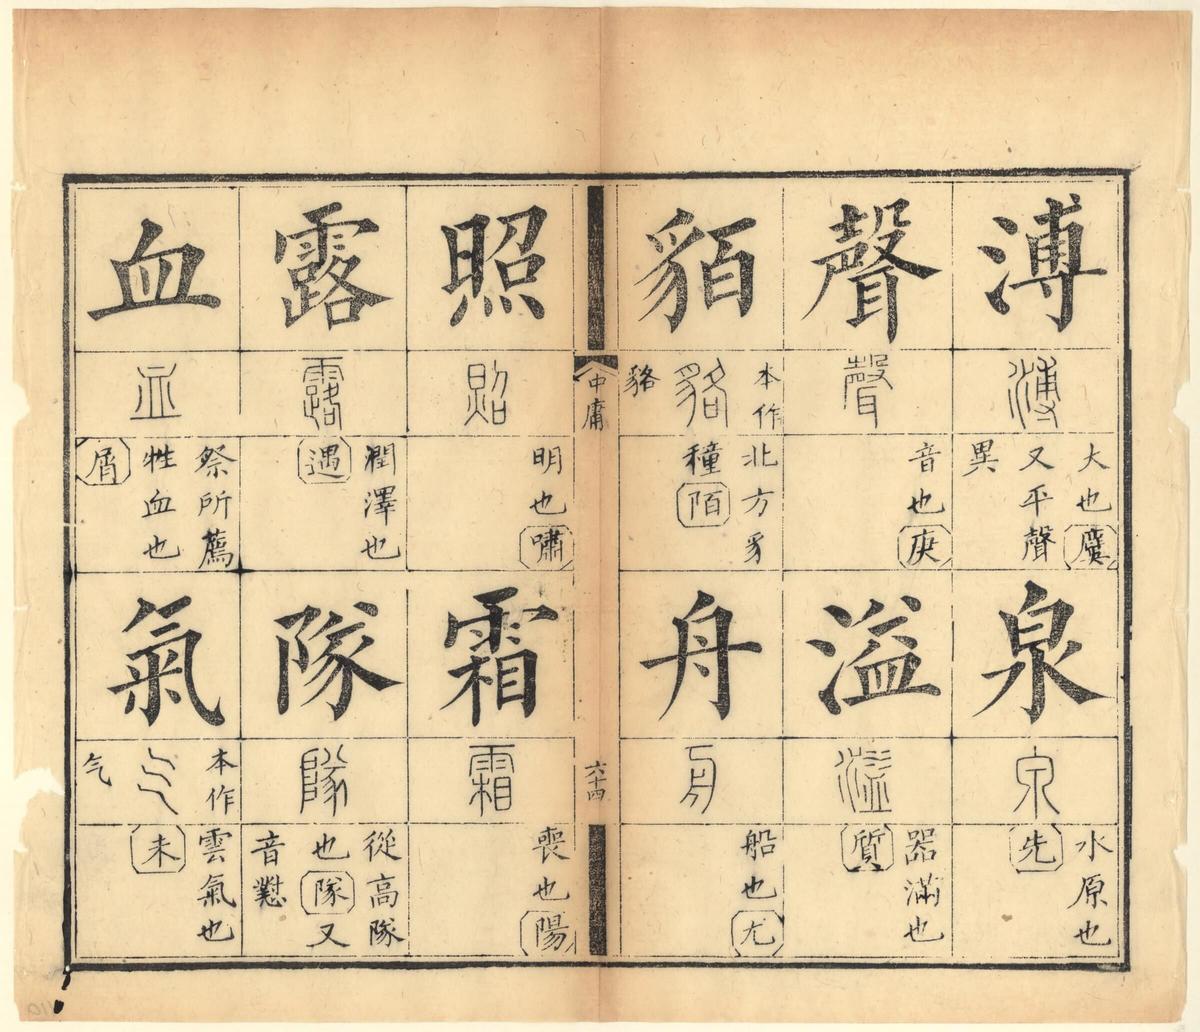 溥
溥
大也虞
又平聲
異
泉
泉
水原也
先
聲
聲
音也庚
溢
溢
器滿也
質
貊
本作
貉
貉
北方豸
種陌
舟
舟
船也尤
中庸
六十四
照
照
明也嘯
霜
霜
喪也陽
露
露
潤澤也
遇
隊
隊
從高隊
也隊又
音懟
血
血
祭所薦
牲血也
屑
氣
本作
气
气
雲氣也
未